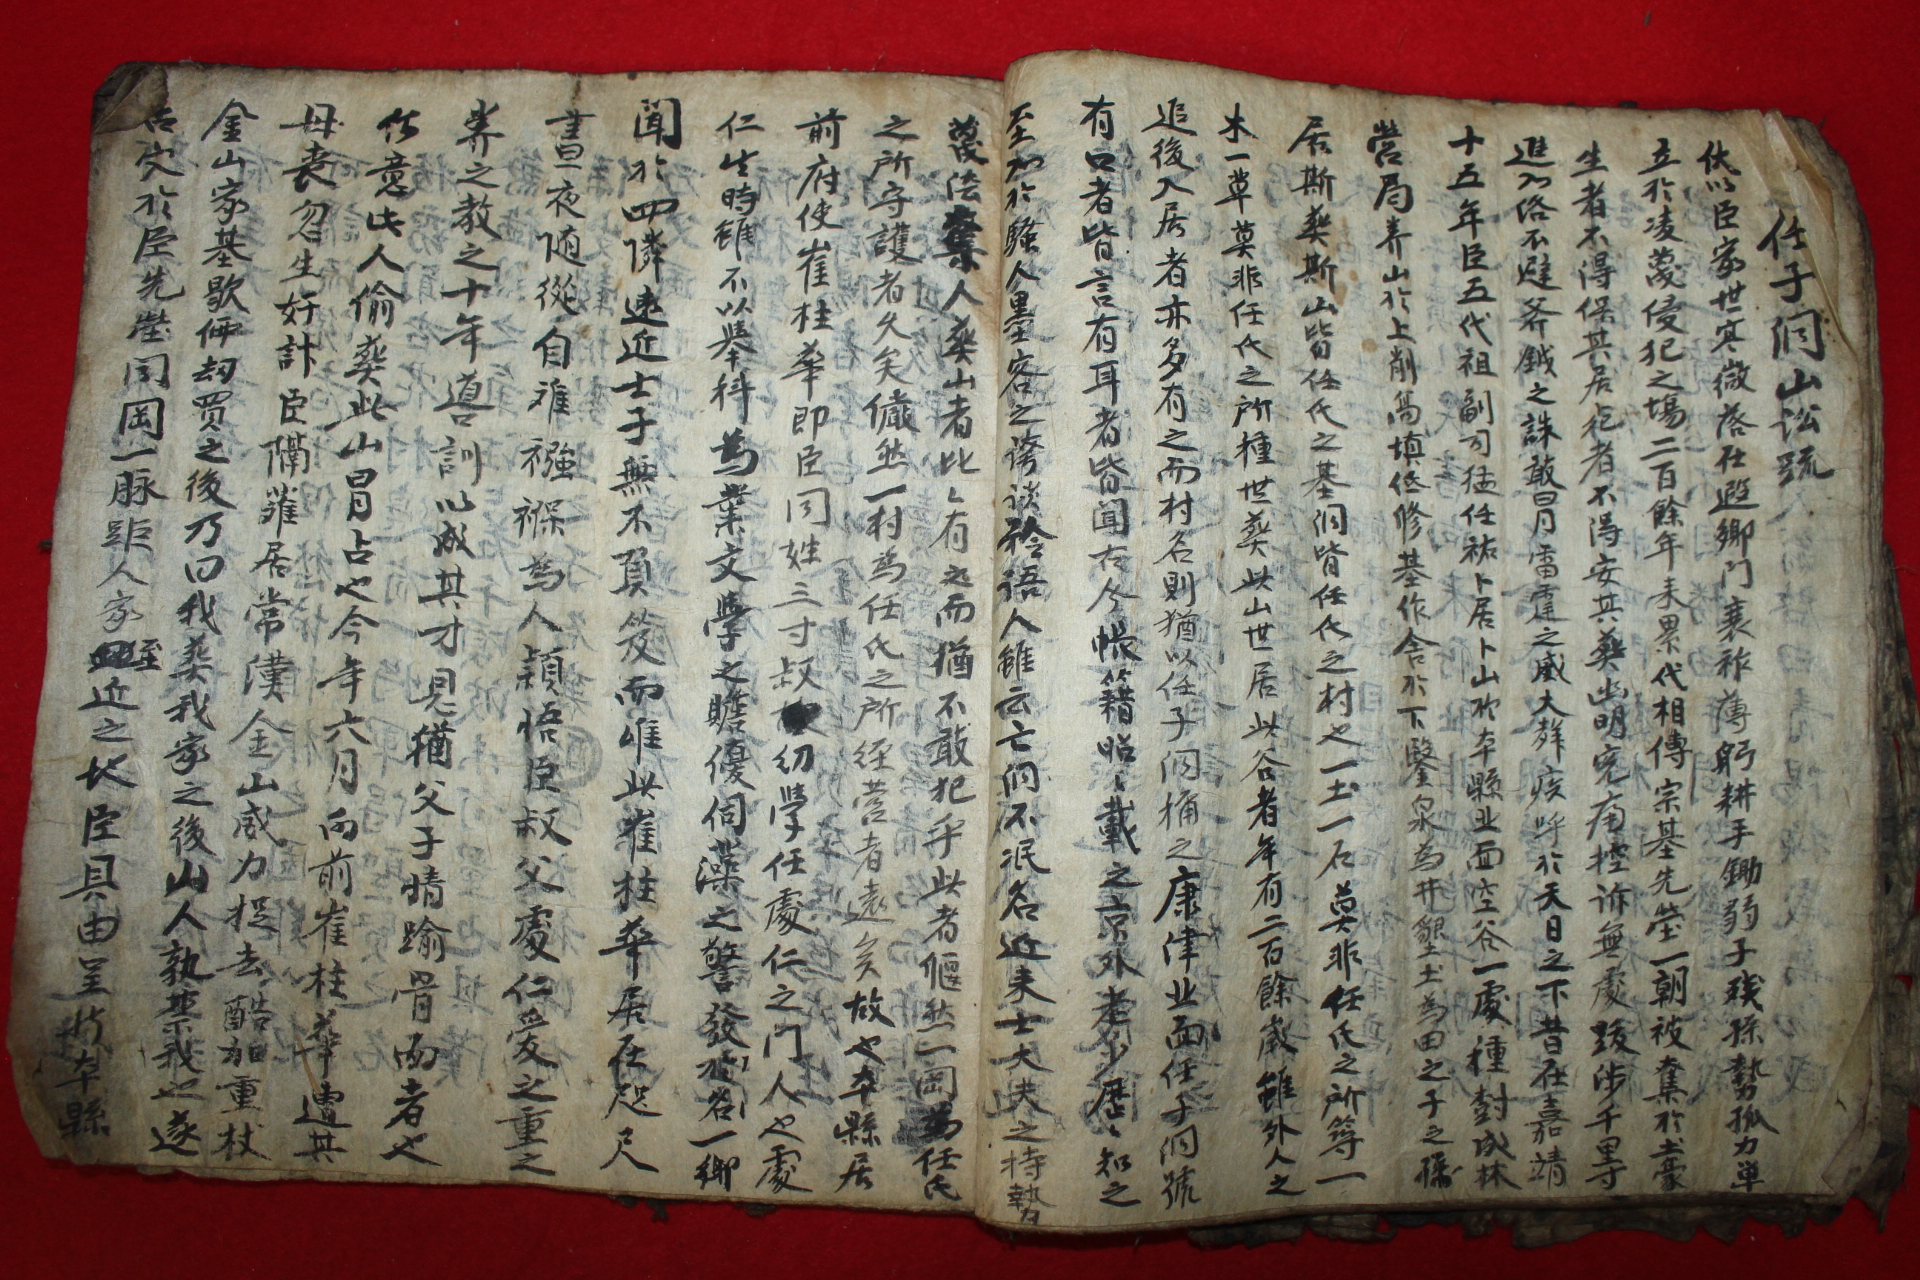 任子洞山訟疏
伏以臣家世寒微落在遐鄕門衰祚薄躬耕手鋤弱子殘孫勢孤力單
立於凌蔑侵犯之場二百餘年未累代相傳宗基先塋一朝被奪於土豪
生者不得保其居死者不得安其葬幽明寃痛控訴無處跋涉千里
進入洛不避斧鉞之誅敢冒雷霆之威大聲疾呼於天日之下昔在嘉靖
十五年臣五代祖副司猛任祐卜居卜山於本縣北面空谷一處種樹成林
營局養山於上削高塡低修基作舍於下鑿泉爲井墾土爲田之子之孫
居斯葬斯山皆任氏之基洞皆任氏之村也一土一石莫非任氏之所等一
木一草莫非任氏之所種世葬此山世居此谷者年有二百餘歲雖外人之
追後入居者亦多有之而村名則猶以任子洞稱之康津北面任子洞號
有口者皆言有耳者皆聞在今帳籍昭〻載之京外老少歷〻知之
至如於騷人墨客之
談
語人雖云亡洞不泯名近来士大夫之恃勢
蔑法奪人葬山者比〻有之而猶不敢犯乎此者偃然一岡爲任氏
之所守護者久矣儼然一村爲任氏之所經營者遠矣故也本縣居
前府使崔柱華即臣同姓三寸叔
幼學任處仁之門人也處
仁生時雖不以擧科爲業文學之贍優伺藻之警發
名一鄕
聞於四隣遠近士子無不負笈而唯此崔柱華居在咫尺
晝夜隨從自难襁褓爲人穎悟臣叔父處仁愛之重之
養之敎之十年導訓以成其才見猶父子情踰骨肉者也
意此人偷葬此山冒占也今年六月向前崔柱華遭其
母喪忽生奸計臣隣
居常漢金山威力捉去酷加重杖
金山家基歇価刼買之後乃曰我葬我家之後山人孰禁我也遂
占穴於臣先塋同岡一脉距人家
至近之地臣具由呈於本縣